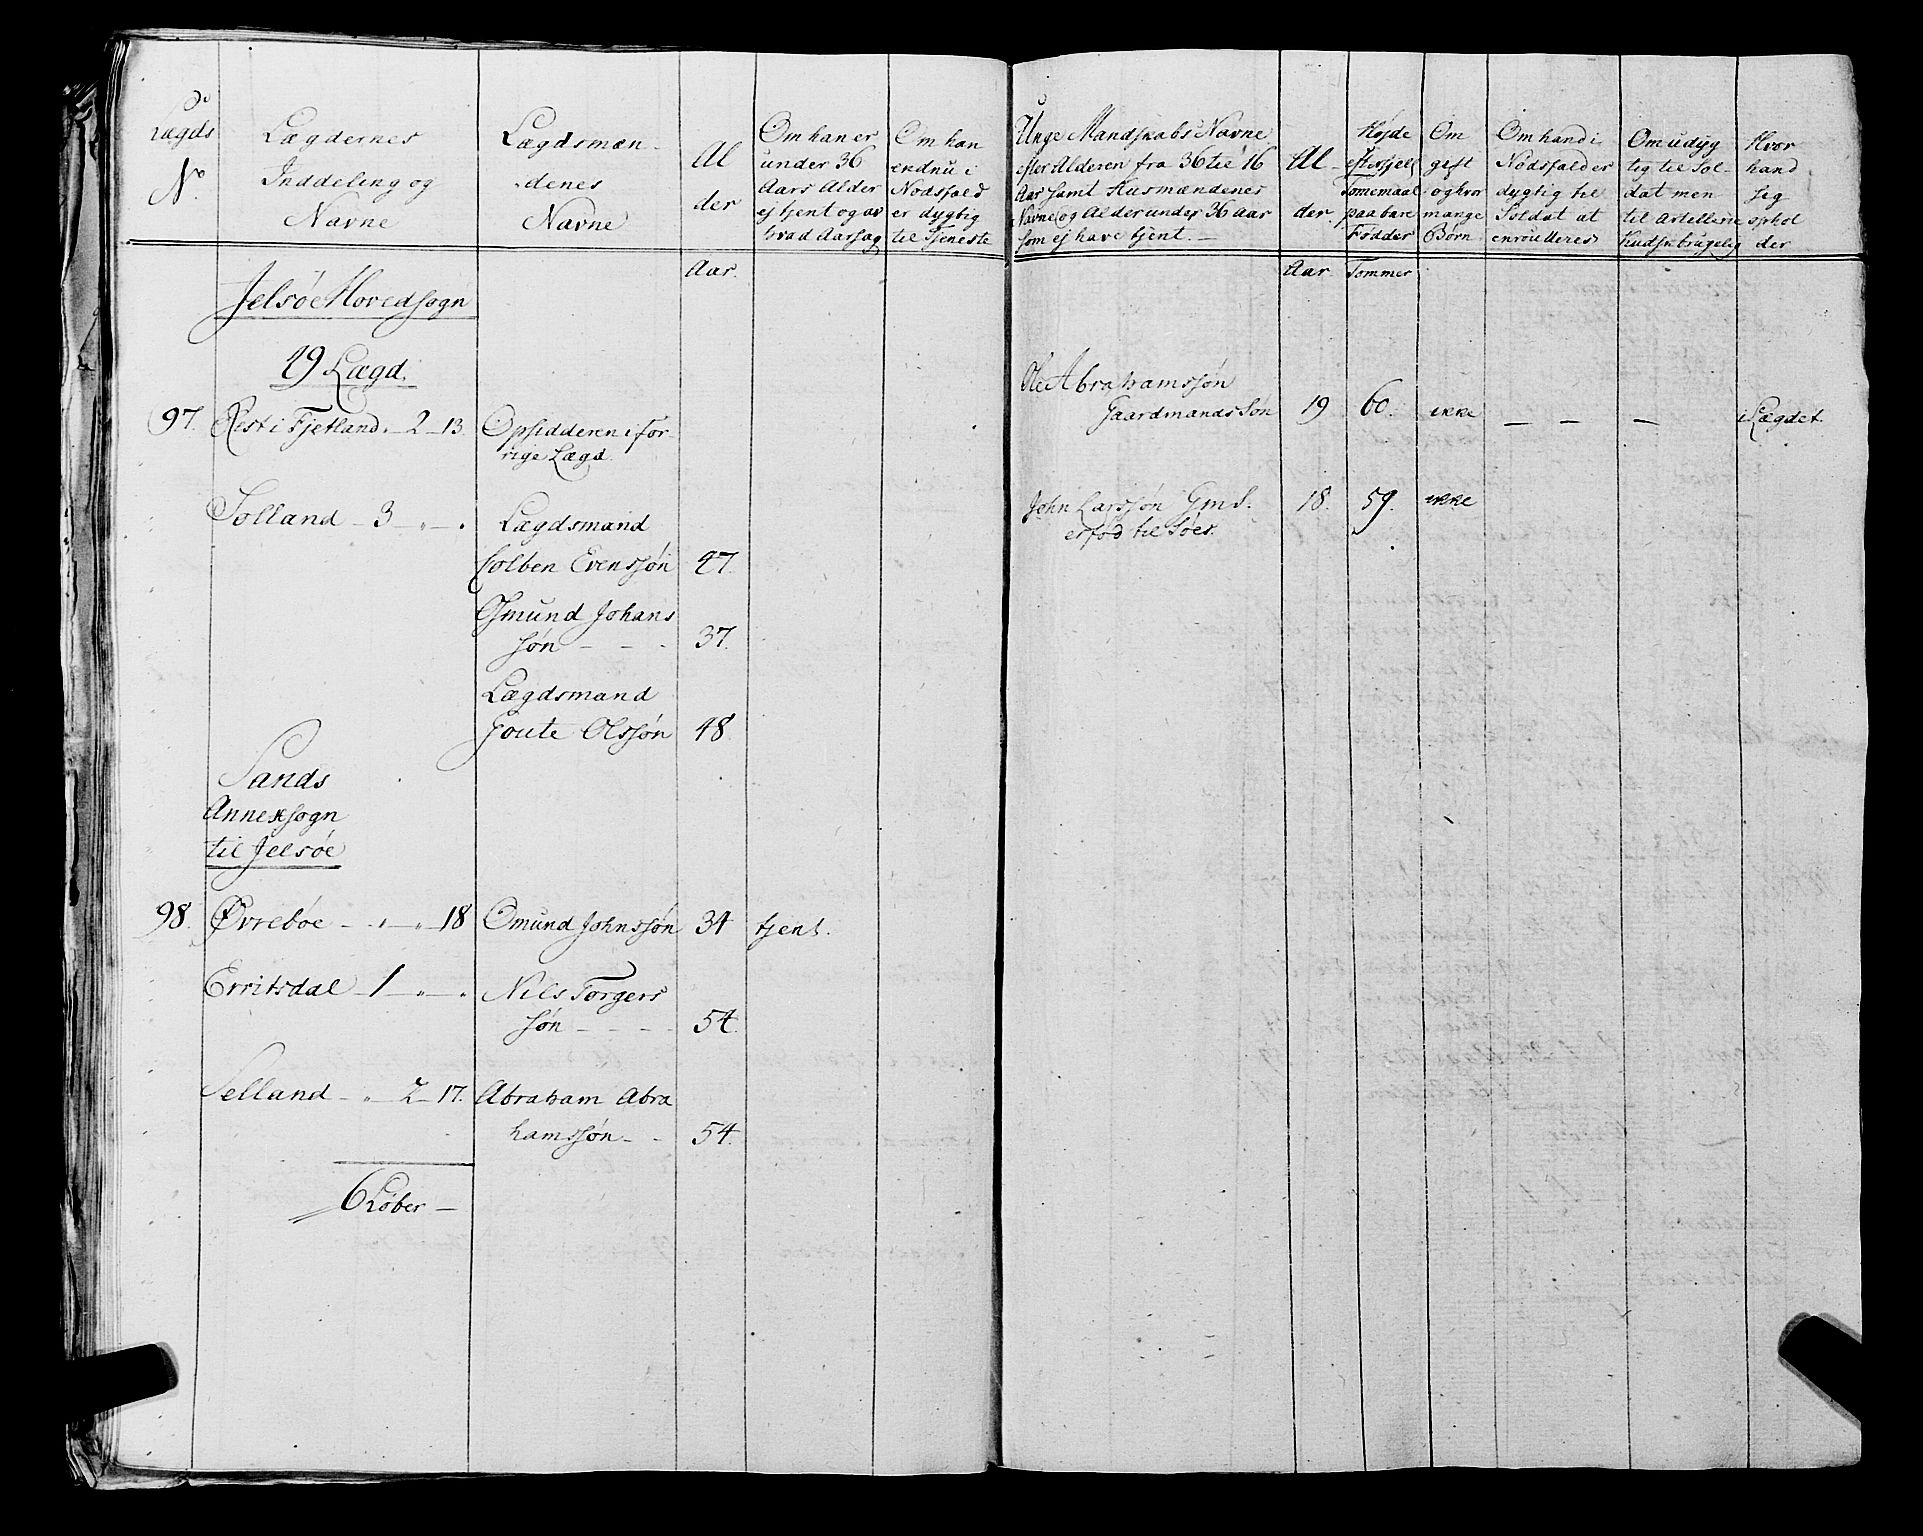 Lægds
No.
Lægdernes
Inddeling og
Navne
Lægdsmæn-
denes
Navne
Al
der
Om han er
under 36
Aars Alder
ej tjent og av
hvad Aarsag
Om han
endnu i
Nödsfald
er dygtig
til Tjeneste
Unge Mandskabs Navne
efter Alderen fra 36 til 16
Aar samt Husmændenes
Navne og Alder under 36 Aar
som ej have tjent.
Al-
der
Højde
efter Sjell
Tomemaal
paa bare
Födder
Om
gift
og hvor
mange
Börn
Om hand i
Nödsfald er
dygtig til
Soldat at
enroulleres
Om udyg
tig til Sol-
dat men
til Artellerie
Kudsk brugelig
Hvor
hand
seg
ophol
der
Aar.
Aar Tommer
Jelsöe Hovedsogn
49 Lægd.
97. Rest i Fjetland. 2 - 13. Opsidderen i for-
rige Lægd.
Ole Abrahamssön
Gaardmands Sön 19 60. ikke — — — i Lægdet.
Solland - 3 - " - " Lægdsmand
Colben Evenssön 47.
Osmund Johans
sön - - - 37.
Lægdsmand
Goute Olssön 48.
John Larssön GmS. 18. 59. ikke
er fød til Söes.
Sands
Annexsogn
til Jelsöe
98. Øvreböe - " - " 18 Omund Johnssön 34 tjent.
Erritsdal - 1 - " - " Nils Torgers
sön - - - - 54.
Selland - " 2 - 17. Abraham Abra
hamssön - - 54.
6 Löber -